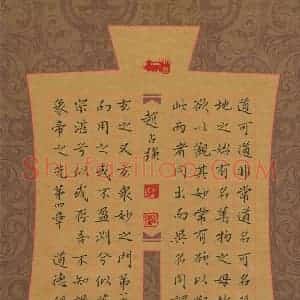 道可道非常道名可
地之始有名萬物之母
欲以觀其妙常有欲以觀
此兩者同出而異名同
趙占
玄之又玄衆妙之門第
而用之或不盈淵兮似
宗湛兮似或存吾不知誰
象帝之先第四章 道德經
Shufaziliao.com